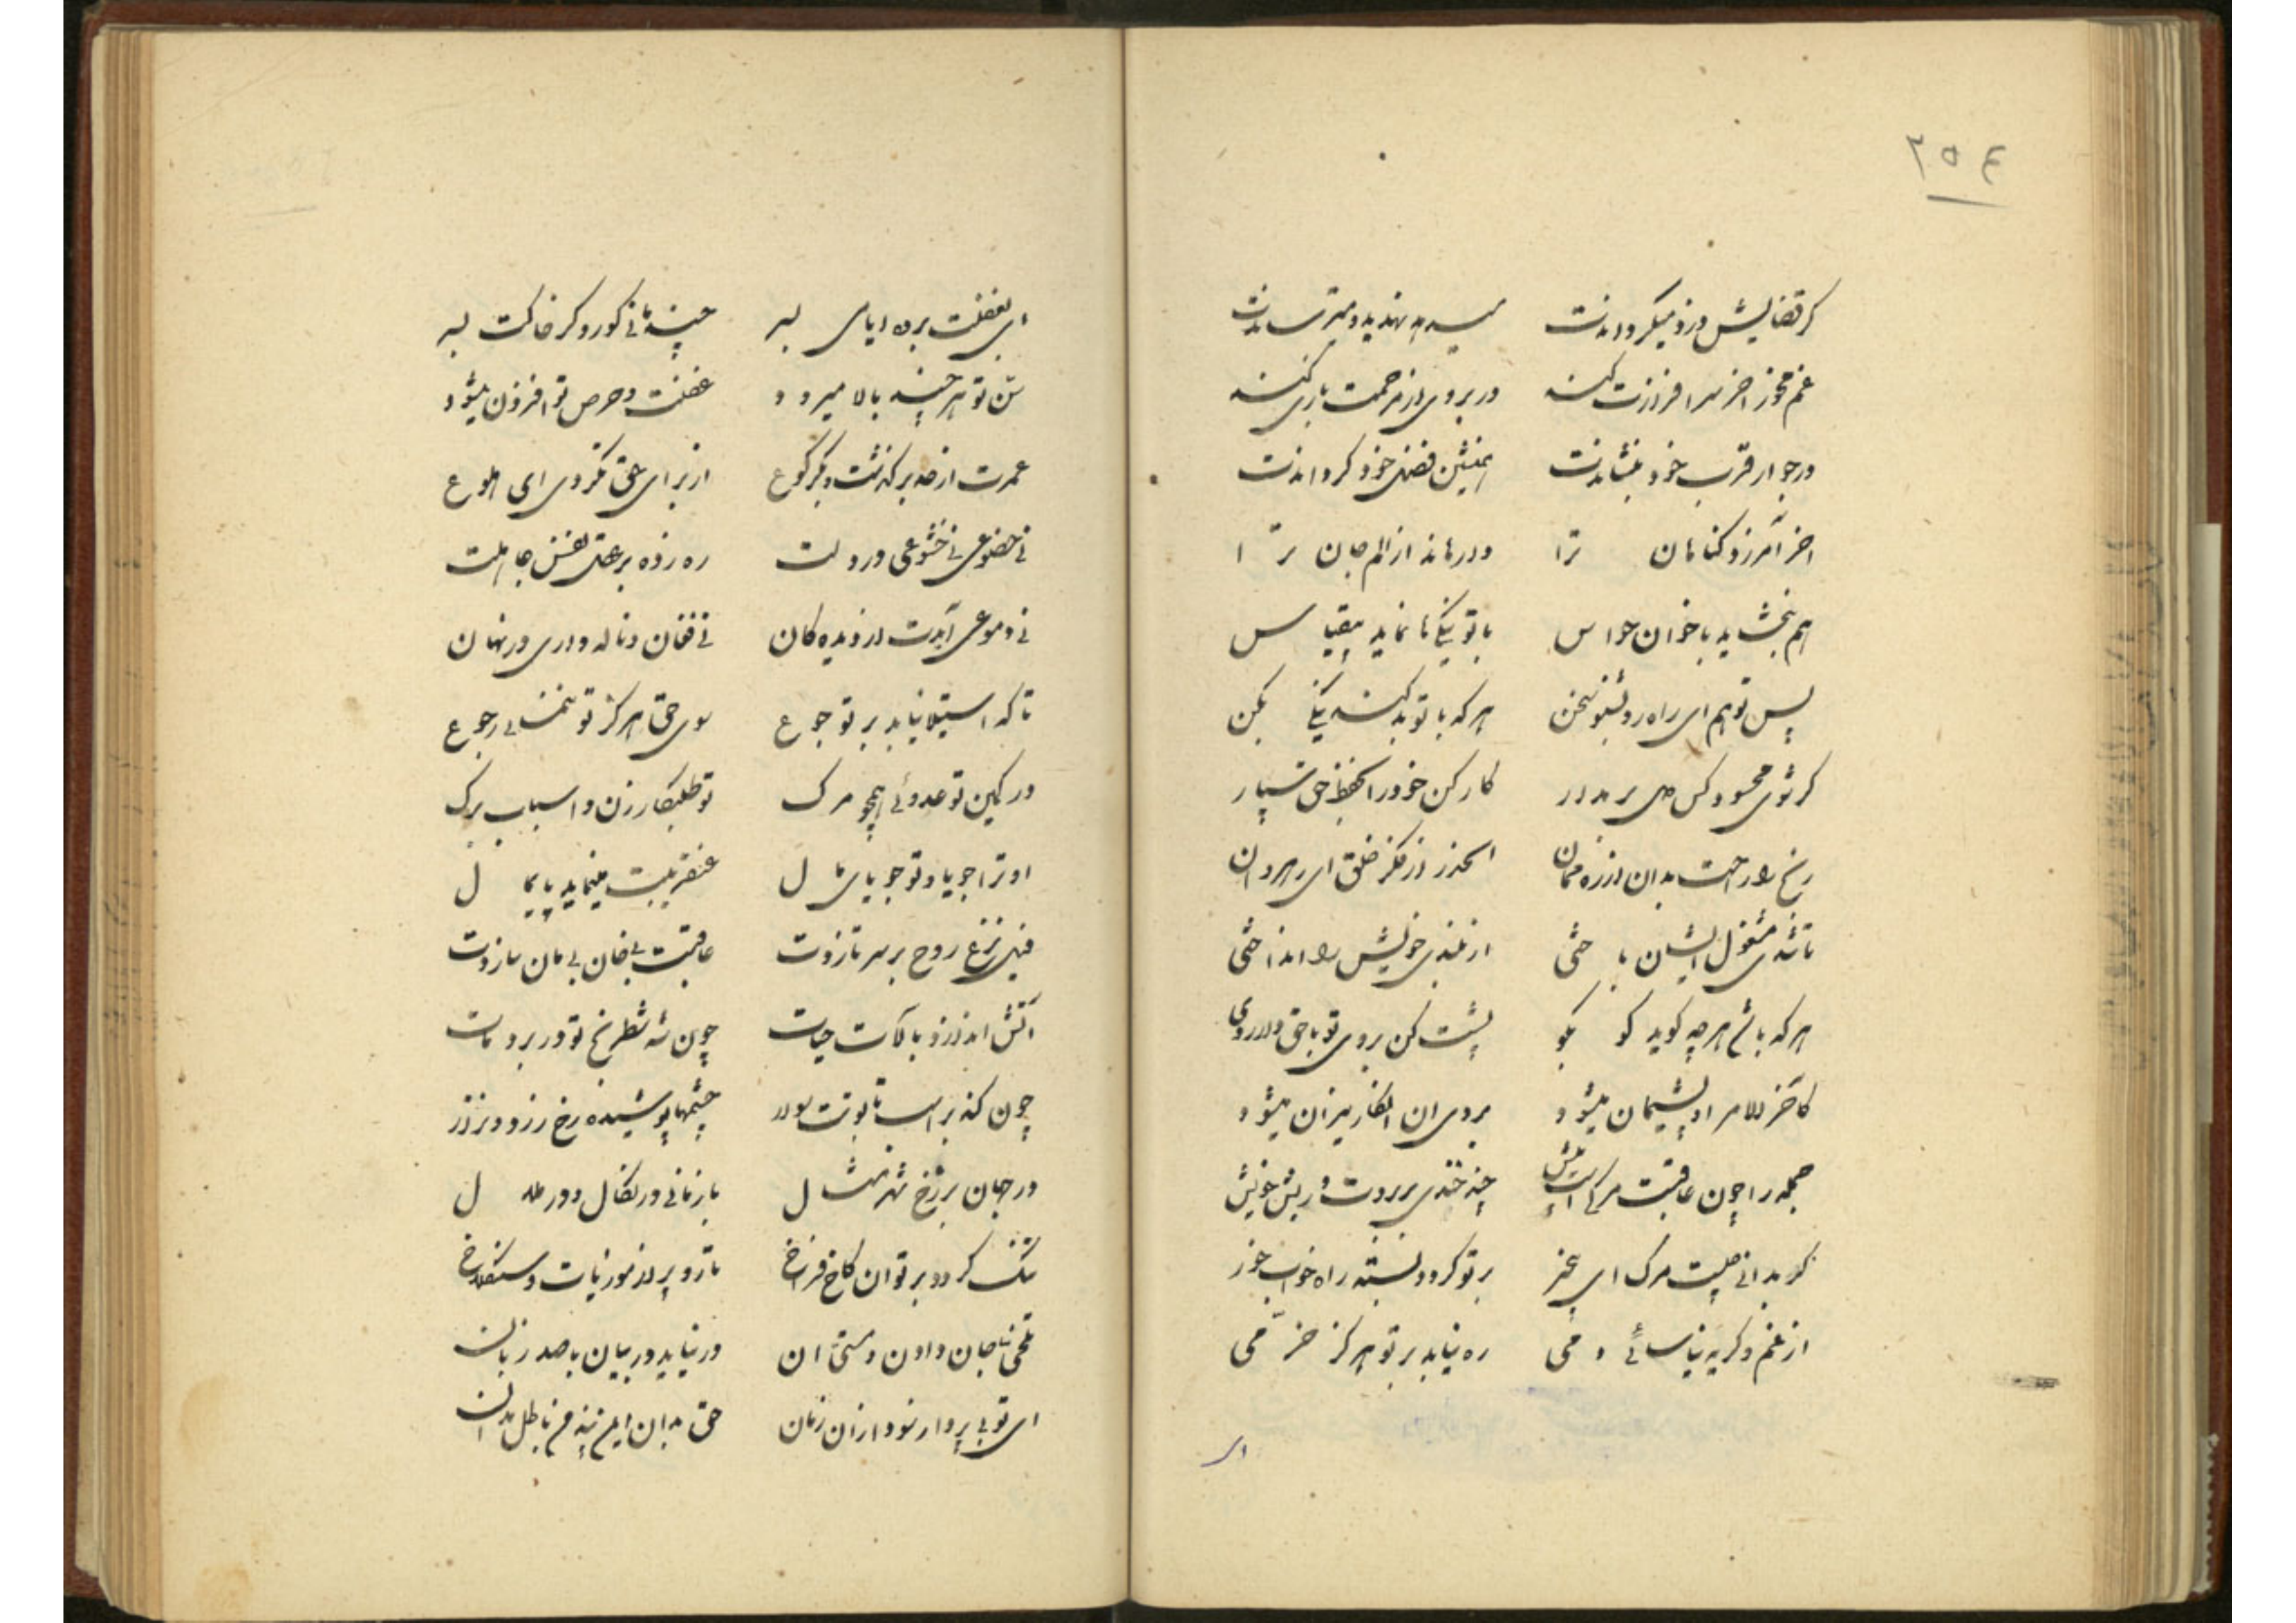 ۲۵۴
گر قضایش دزد میگرداندت میدهد تهدید و میترساندت
غم مخور آخر سرافرازت کند در بروی از مرحمت بازی کند
در جوار قرب خود بنشاندت همنشین فضل خود گرداندت
آخر آمرزد گناهان ترا وارهاند از الم جان ترا
هم ببخشاید باخوان حواس با تو نیکیها نماید بیقیاس
پس تو هم ای راه رو بشنو سخن هر که با تو بد کند نیکی بکن
گر شوی محسود کس دل بر مدار کار کن خود را بحفظ حق سپار
رنج را راحت بدان از رهزنان الحذر از مکر خلق ای رهروان
تا شدی مشغول ایشان باختی از بلندی خویش را انداختی
هر که باشد هر چه گوید گو بگو پشت کن روی تو با حق دار روی
کآخر الامر او پشیمان میشود روی آن انکار میزان میشود
جمله را چون عاقبت مرگست پیش چند خندی بر بروت و ریش خویش
گر بدانی چیست مرگ ای بیخبر بر تو گردد بسته راه خواب و خور
از غم و گریه نیاسائی دمی ره نیابد بر تو هرگز خرمی
ای
ای بغفلت برده ایامی بسر چند مانی کور و کر خاکت بسر
سن تو هر چند بالا میرود غفلت و حرص تو افزون میشود
عمرت از صد برگذشت و یک رکوع از برای حق نکردی ای هلوع
نی خضوعی نی خشوعی در دلت ره زده بر عقل نفس جاهلت
نی دموعی آیدت از دیدگان نی فغان و ناله داری در نهان
تا که استیلا نیابد بر تو جوع سوی حق هرگز تو ننمائی رجوع
در کمین تو عدوئی همچو مرگ تو طلبکار زن و اسباب و برگ
او ترا جویا و تو جویای مال عنقریبت مینماید پایمال
فیل نزع روح بر سر تازدت عاقبت بیخان و بیمان سازدت
آتش اندازد بآلات حیات چون شه شطرنج تو در برد و مات
چون کند بر اسب تابوتت سوار چشمها پوشیده رخ زرد و نزار
در جهان برزخ شهر مثال باز مانی در نکال و در ملال
تنگ گردد بر تو آن کاخ فراخ تار و پر از موذیات و سنگلاخ
تلخی جان دادن و سختی آن در نیاید در بیان با صد زبان
ای تو بی پروا ز سود و از زیان حق بدان این پند من باطل مدان